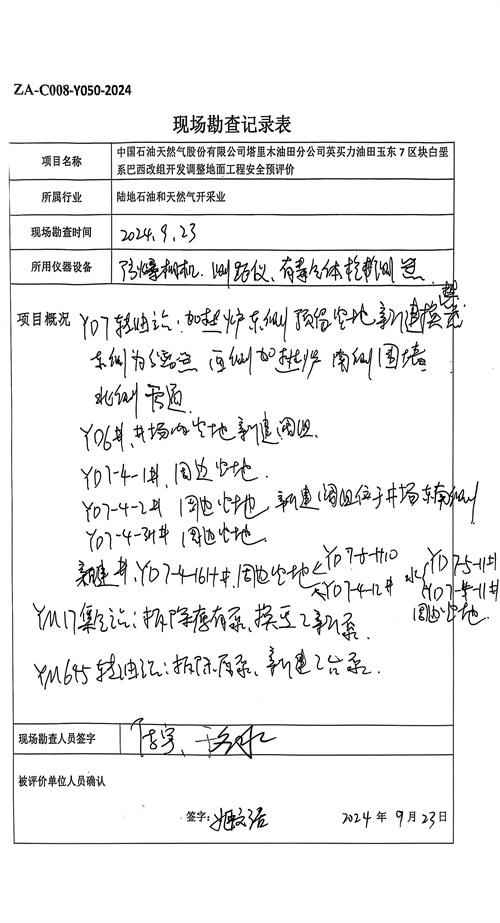 ZA-C008-Y050-2024
现场勘查记录表
项目名称
中国石油天然气股份有限公司塔里木油田分公司英买力油田玉东 7 区块白垩
系巴西改组开发调整地面工程安全预评价
所属行业
陆地石油和天然气开采业
现场勘查时间
2024.9.23
所用仪器设备
防爆相机、测距仪、有毒气体检测
项目概况
YD7转油站：加热炉东侧预留空地新建
东侧为 西侧加热炉 南侧围墙
北侧
YD6井，井场内空地新建阀组.
YD7-4-1井，周边空地.
YD7-4-2井 周边空地 新建阀组位于井场东南侧
YD7-4-3井 周边空地
新建井，YD7-4-16H井，周边空地
YD7-5-H10
YD7-4-12井
水
YD7-5-11井
周边空地.
YM17集气站：拆除原有泵、换 2 新泵.
YM645转油站：拆除原泵、新建2台泵.
现场勘查人员签字
被评价单位人员确认
签字：
2024 年 9 月 23 日